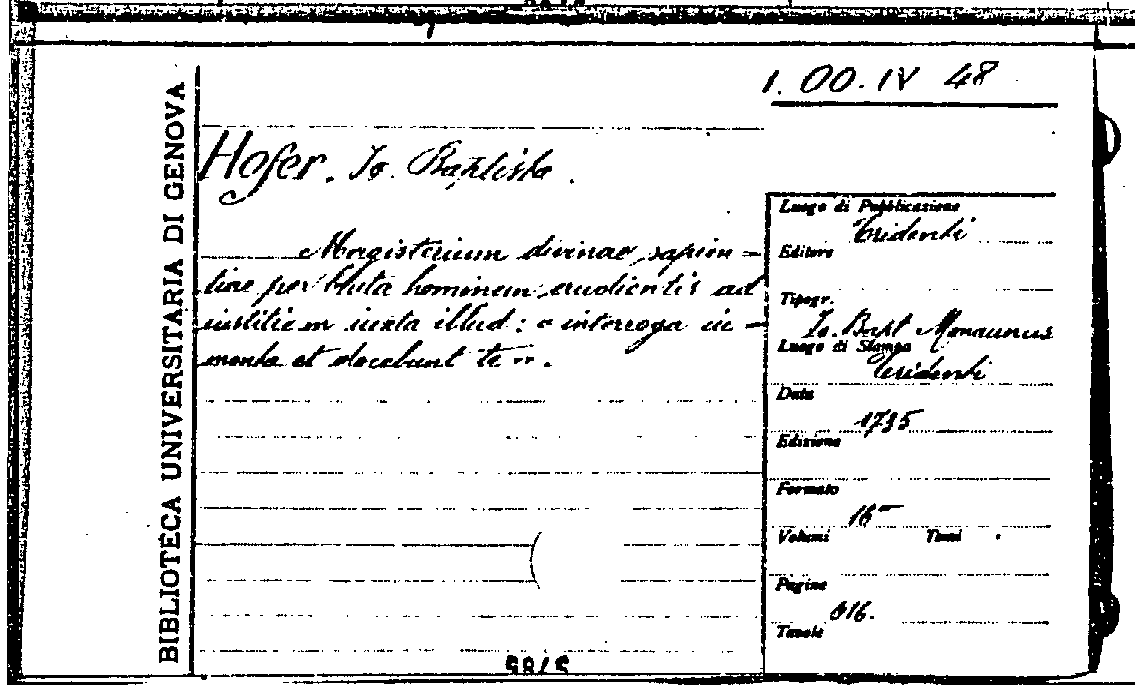 1. OO. IV 48
BIBLIOTECA UNIVERSITARIA DI GENOVA
Hofer, Io. Baptista.
Magisterium divinae sapien=
tiae per bruta hominem erudientis ad
iustitiam iuxta illud: « interroga iu=
menta et docebunt te ».
Luogo di Pubblicazione
Tridenti
Editore
Tipogr.
Io. Bapt Monaunus
Luogo di Stampa
Tridenti
Data
1735
Edizione
Formato
16-
Volumi Tomi
Pagine
616.
Tavole